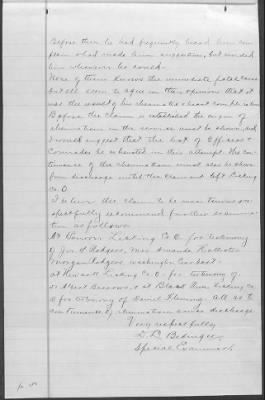 Before then he had frequently heard him com
plain what made him suggestion, but
him whenever he could.
None of them knows the immediate fatal cause
but all seem to agree in the opinion that it
was the result of his rheumatic & heart complications
Before the claim is established the origin of
rheumatism in the service must be shown, and
I would suggest that the list of Officers &
Comrades be exhausted in this attempt. The con-
tinuance of the rheumatism must also be shown
from discharge until the claimant left Licking
Co. O.
I believe the claim to be meritorious & re-
spectfully recommend further examina-
tion as follows:
At Licking Co. O. for testimony
of Jno. H. Rodgers, Mrs. Amanda Hollister
Morgan Rodgers Washington
at Newark Licking Co. O. for testimony of
Albert & at Black Run Licking Co.
O. for testimony of Daniel Fleming. All as to
continuance of rheumatism since discharge.
Very respectfully
D. L.
Special Examiner.